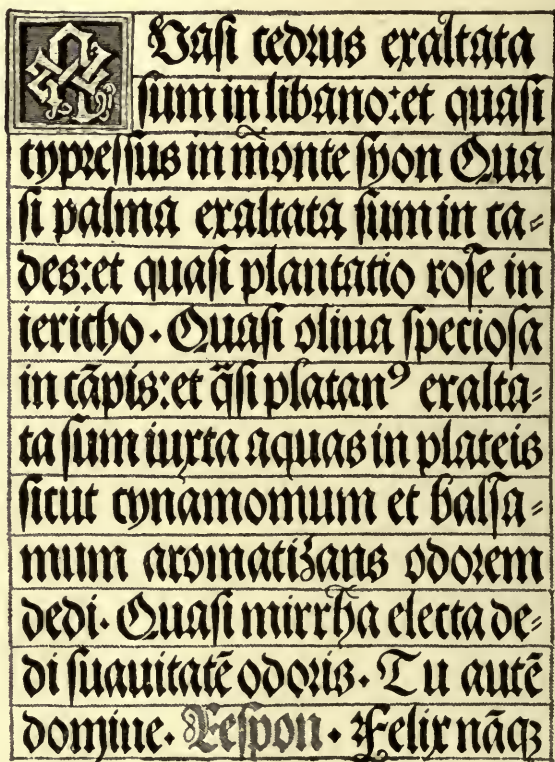 QVaſi cedrus exaltata
ſum in libano:et quaſi
cypreſſus in monte ſyon Qua
ſi palma exaltata ſum in ca⸗
des:et quaſi plantatio roſe in
iericho · Quaſi oliua ſpecioſa
in cāpis:et q̄ſi platanꝰ exalta⸗
ta ſum iuxta aquas in plateis
ſicut cynamomum et balſa⸗
mum aromatizans odorem
dedi· Quaſi mirrha electa de⸗
di ſuauitatē odoris· Tu autē
domine· Reſpon · Felix nāqꝫ